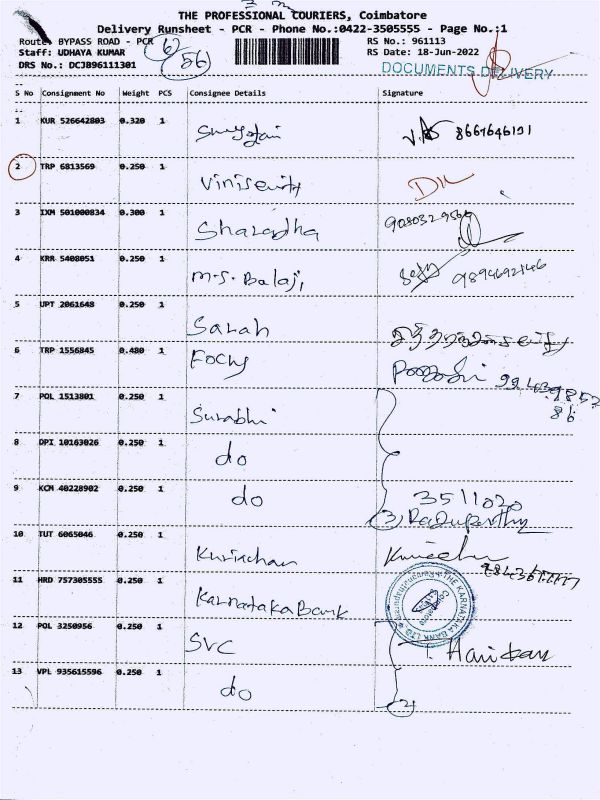 THE PROFESSIONAL COURIERS, Coimbatore
Delivery Runsheet - PCR - Phone No.:0422-3505555 - Page No.:1
Route: BYPASS ROAD - PCR
RS No.: 961113
Staff: UDHAYA KUMAR
56
RS Date: 18-Jun-2022
DRS No.: DCJB96111301
DOCUMENTS DELIVERY
S No Consignment No Weight PCS Consignee Details Signature
1 KUR 526642803 0.320 1
2 TRP 6813569 0.250 1
3 IXM 501000834 0.300 1 Sharadha
4 KRR 5408051 0.250 1 M.S. Balaji, 9894692146
5 UPT 2061648 0.250 1 Sarah
6 TRP 1556845 0.480 1
7 POL 1513801 0.250 1 Surabhi
8 DPI 10163026 0.250 1 do
9 KCM 40228902 0.250 1 do 3511020
(3)
10 TUT 6065046 0.250 1 Kuriachan
11 HRD 757305555 0.250 1 Karnataka Bank
THE KARNATAKA BANK LTD.
12 POL 3250956 0.250 1 SVC T. Hariharan
13 VPL 935615596 0.250 1 do
(2)